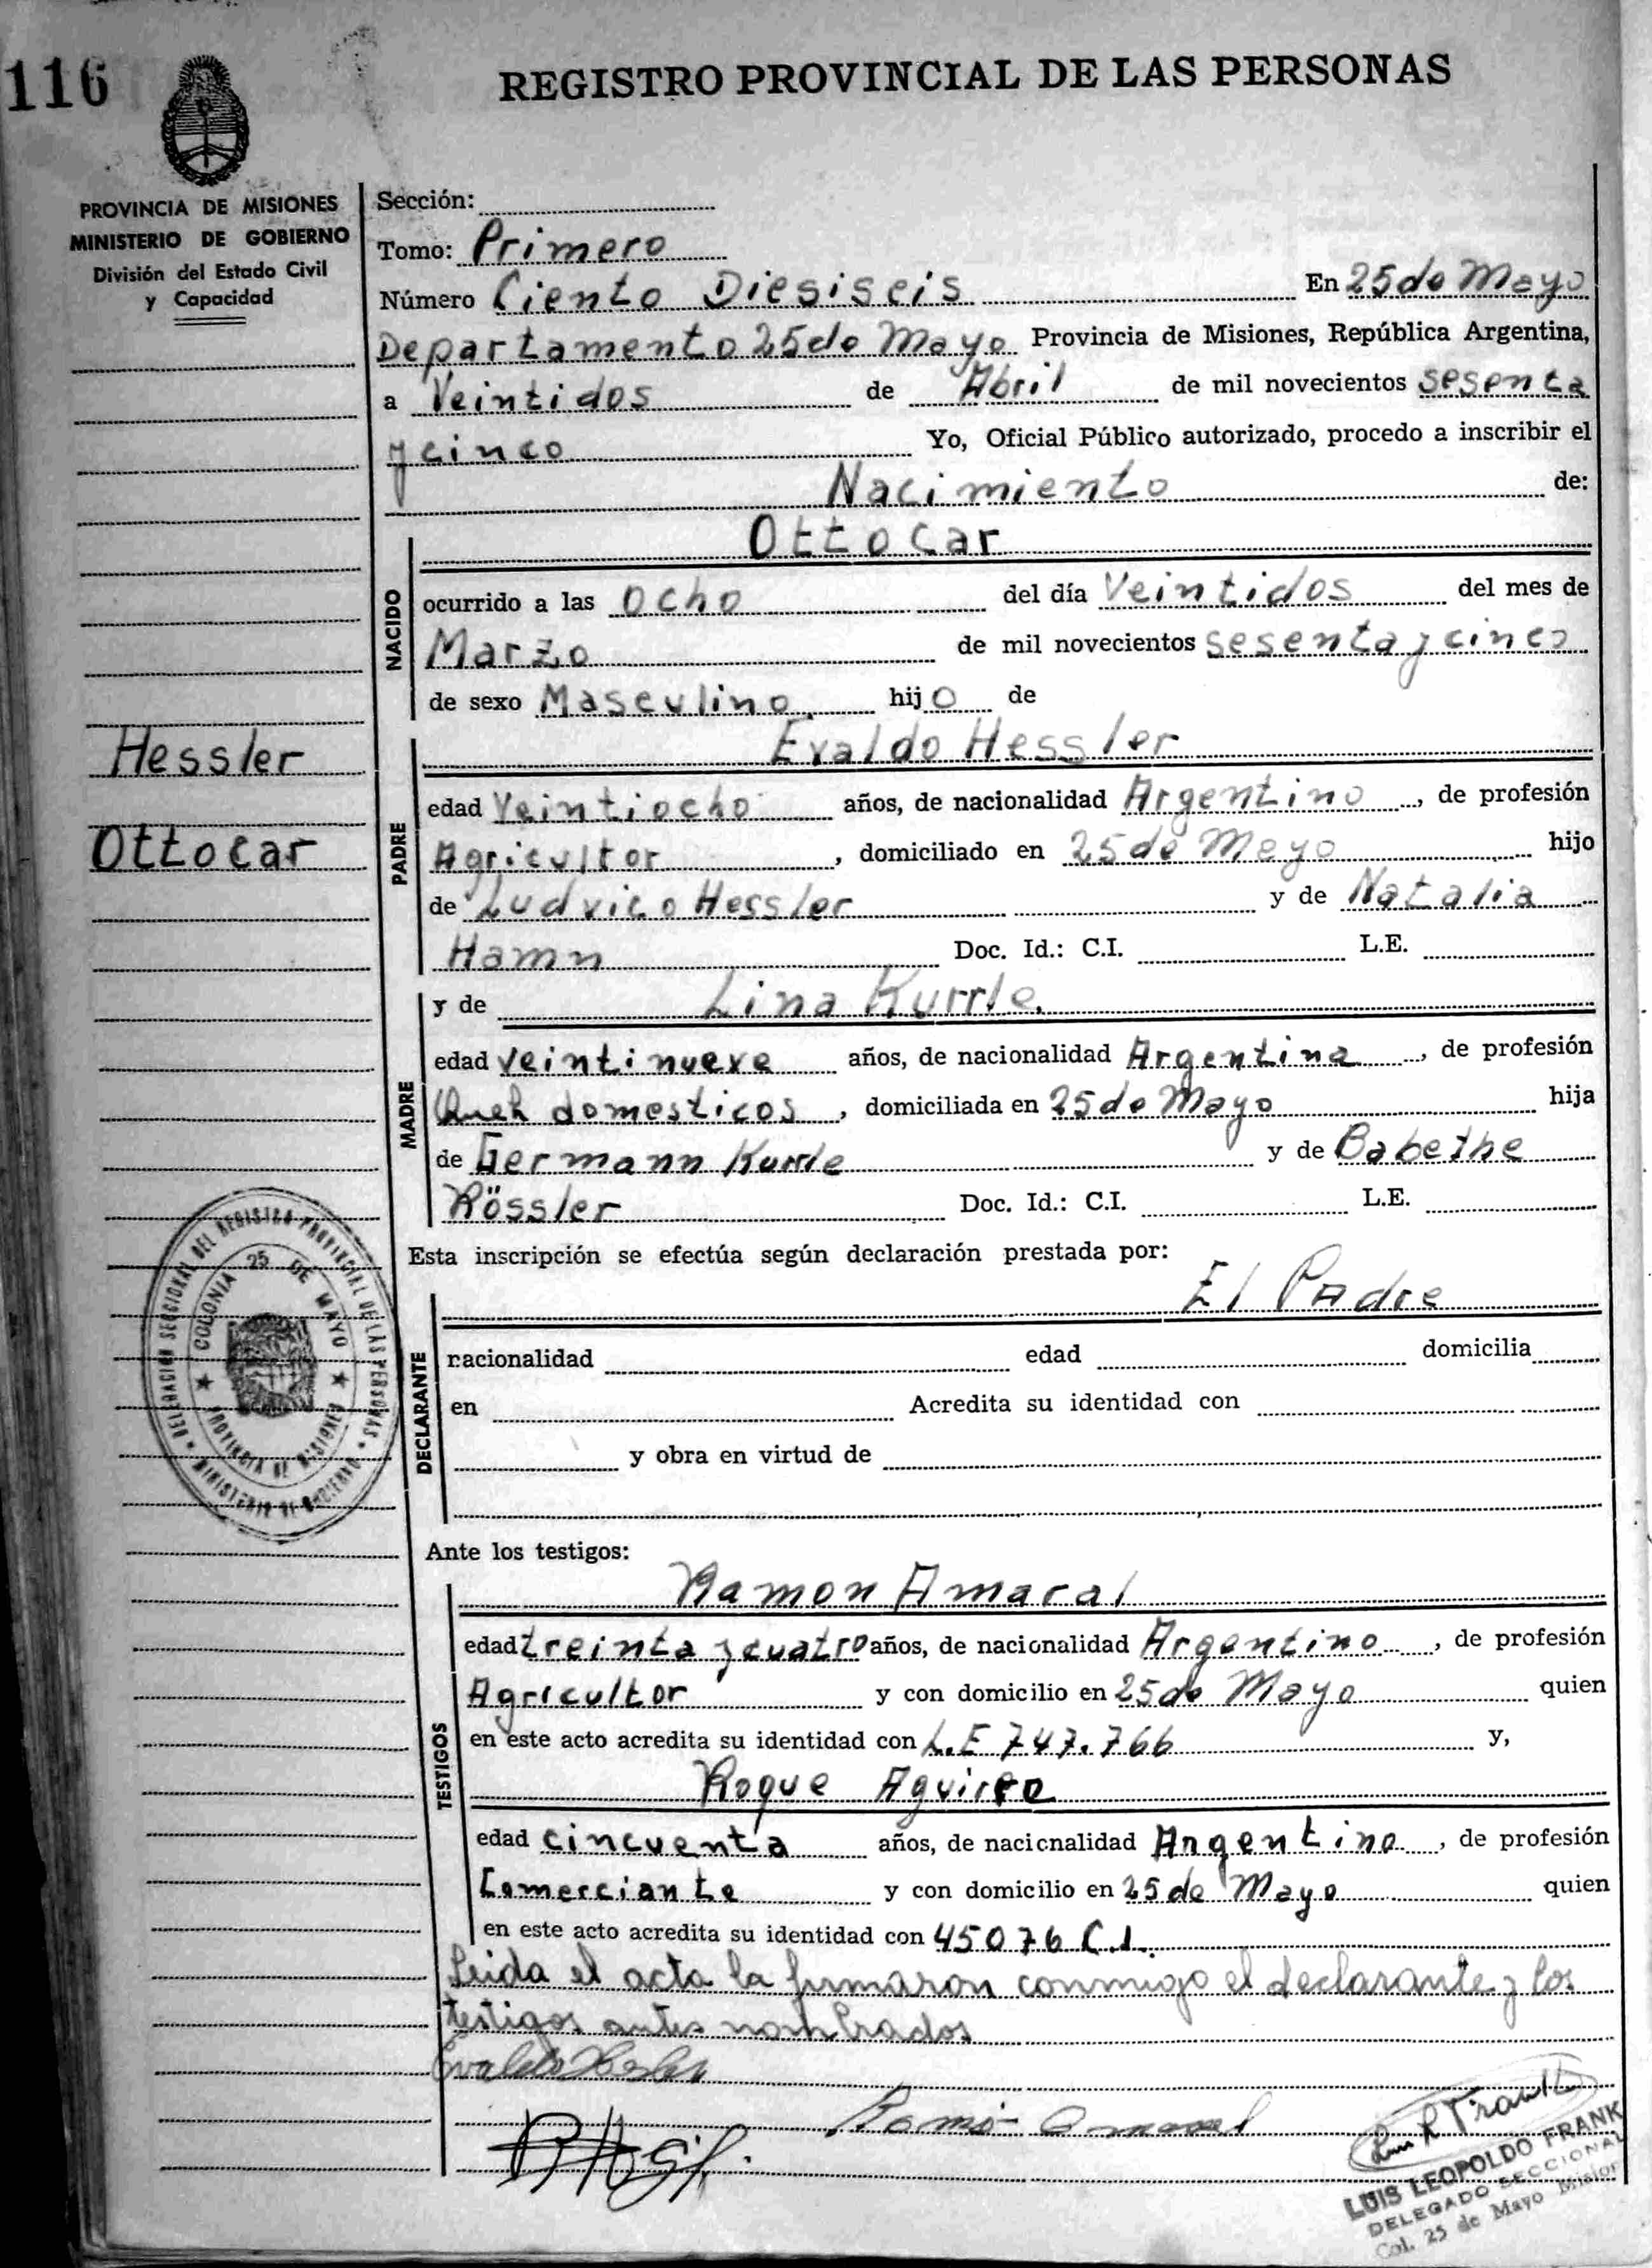 116
REGISTRO PROVINCIAL DE LAS PERSONAS
PROVINCIA DE MISIONES
MINISTERIO DE GOBIERNO
División del Estado Civil
y Capacidad
Sección:
Tomo: Primero
Número Ciento Diesiseis En 25 de Mayo
Departamento 25 de Mayo Provincia de Misiones, República Argentina,
a Veintidos de Abril de mil novecientos sesenta
y cinco Yo, Oficial Público autorizado, procedo a inscribir el
Nacimiento de:
Ottocar
NACIDO
ocurrido a las Ocho del día Veintidos del mes de
Marzo de mil novecientos sesenta y cinco
de sexo Masculino hijo de
Hessler
Ottocar
Evaldo Hessler
PADRE
edad Veintiocho años, de nacionalidad Argentino, de profesión
Agricultor, domiciliado en 25 de Mayo hijo
de Ludvico Hessler y de Natalia
Hamn Doc. Id.: C.I. L.E.
y de Lina Kurrle.
MADRE
edad veintinueve años, de nacionalidad Argentina, de profesión
domesticos, domiciliada en 25 de Mayo hija
de Germann Kurrle y de Babethe
Rössler Doc. Id.: C.I. L.E.
Esta inscripción se efectúa según declaración prestada por:
El Padre
DECLARANTE
nacionalidad edad domicilia
en Acredita su identidad con
y obra en virtud de
DELEGACION SECCIONAL DEL REGISTRO PROVINCIAL DE LAS PERSONAS
MINISTERIO DE GOBIERNO
COLONIA 25 DE MAYO
PROVINCIA DE MISIONES
Ante los testigos:
Ramon Amaral
TESTIGOS
edad treinta y cuatro años, de nacionalidad Argentino, de profesión
Agricultor y con domicilio en 25 de Mayo quien
en este acto acredita su identidad con L.E 747.766 y,
Roque Aguirre
edad cincuenta años, de nacionalidad Argentino, de profesión
Comerciante y con domicilio en 25 de Mayo quien
en este acto acredita su identidad con 45076 C.I.
Leida el acta la firmaron conmigo el declarante y los
testigos antes nombrados
Evaldo Hesler
Ramó Amaral
LUIS LEOPOLDO FRANK
DELEGADO SECCIONAL
Col. 25 de Mayo Mision